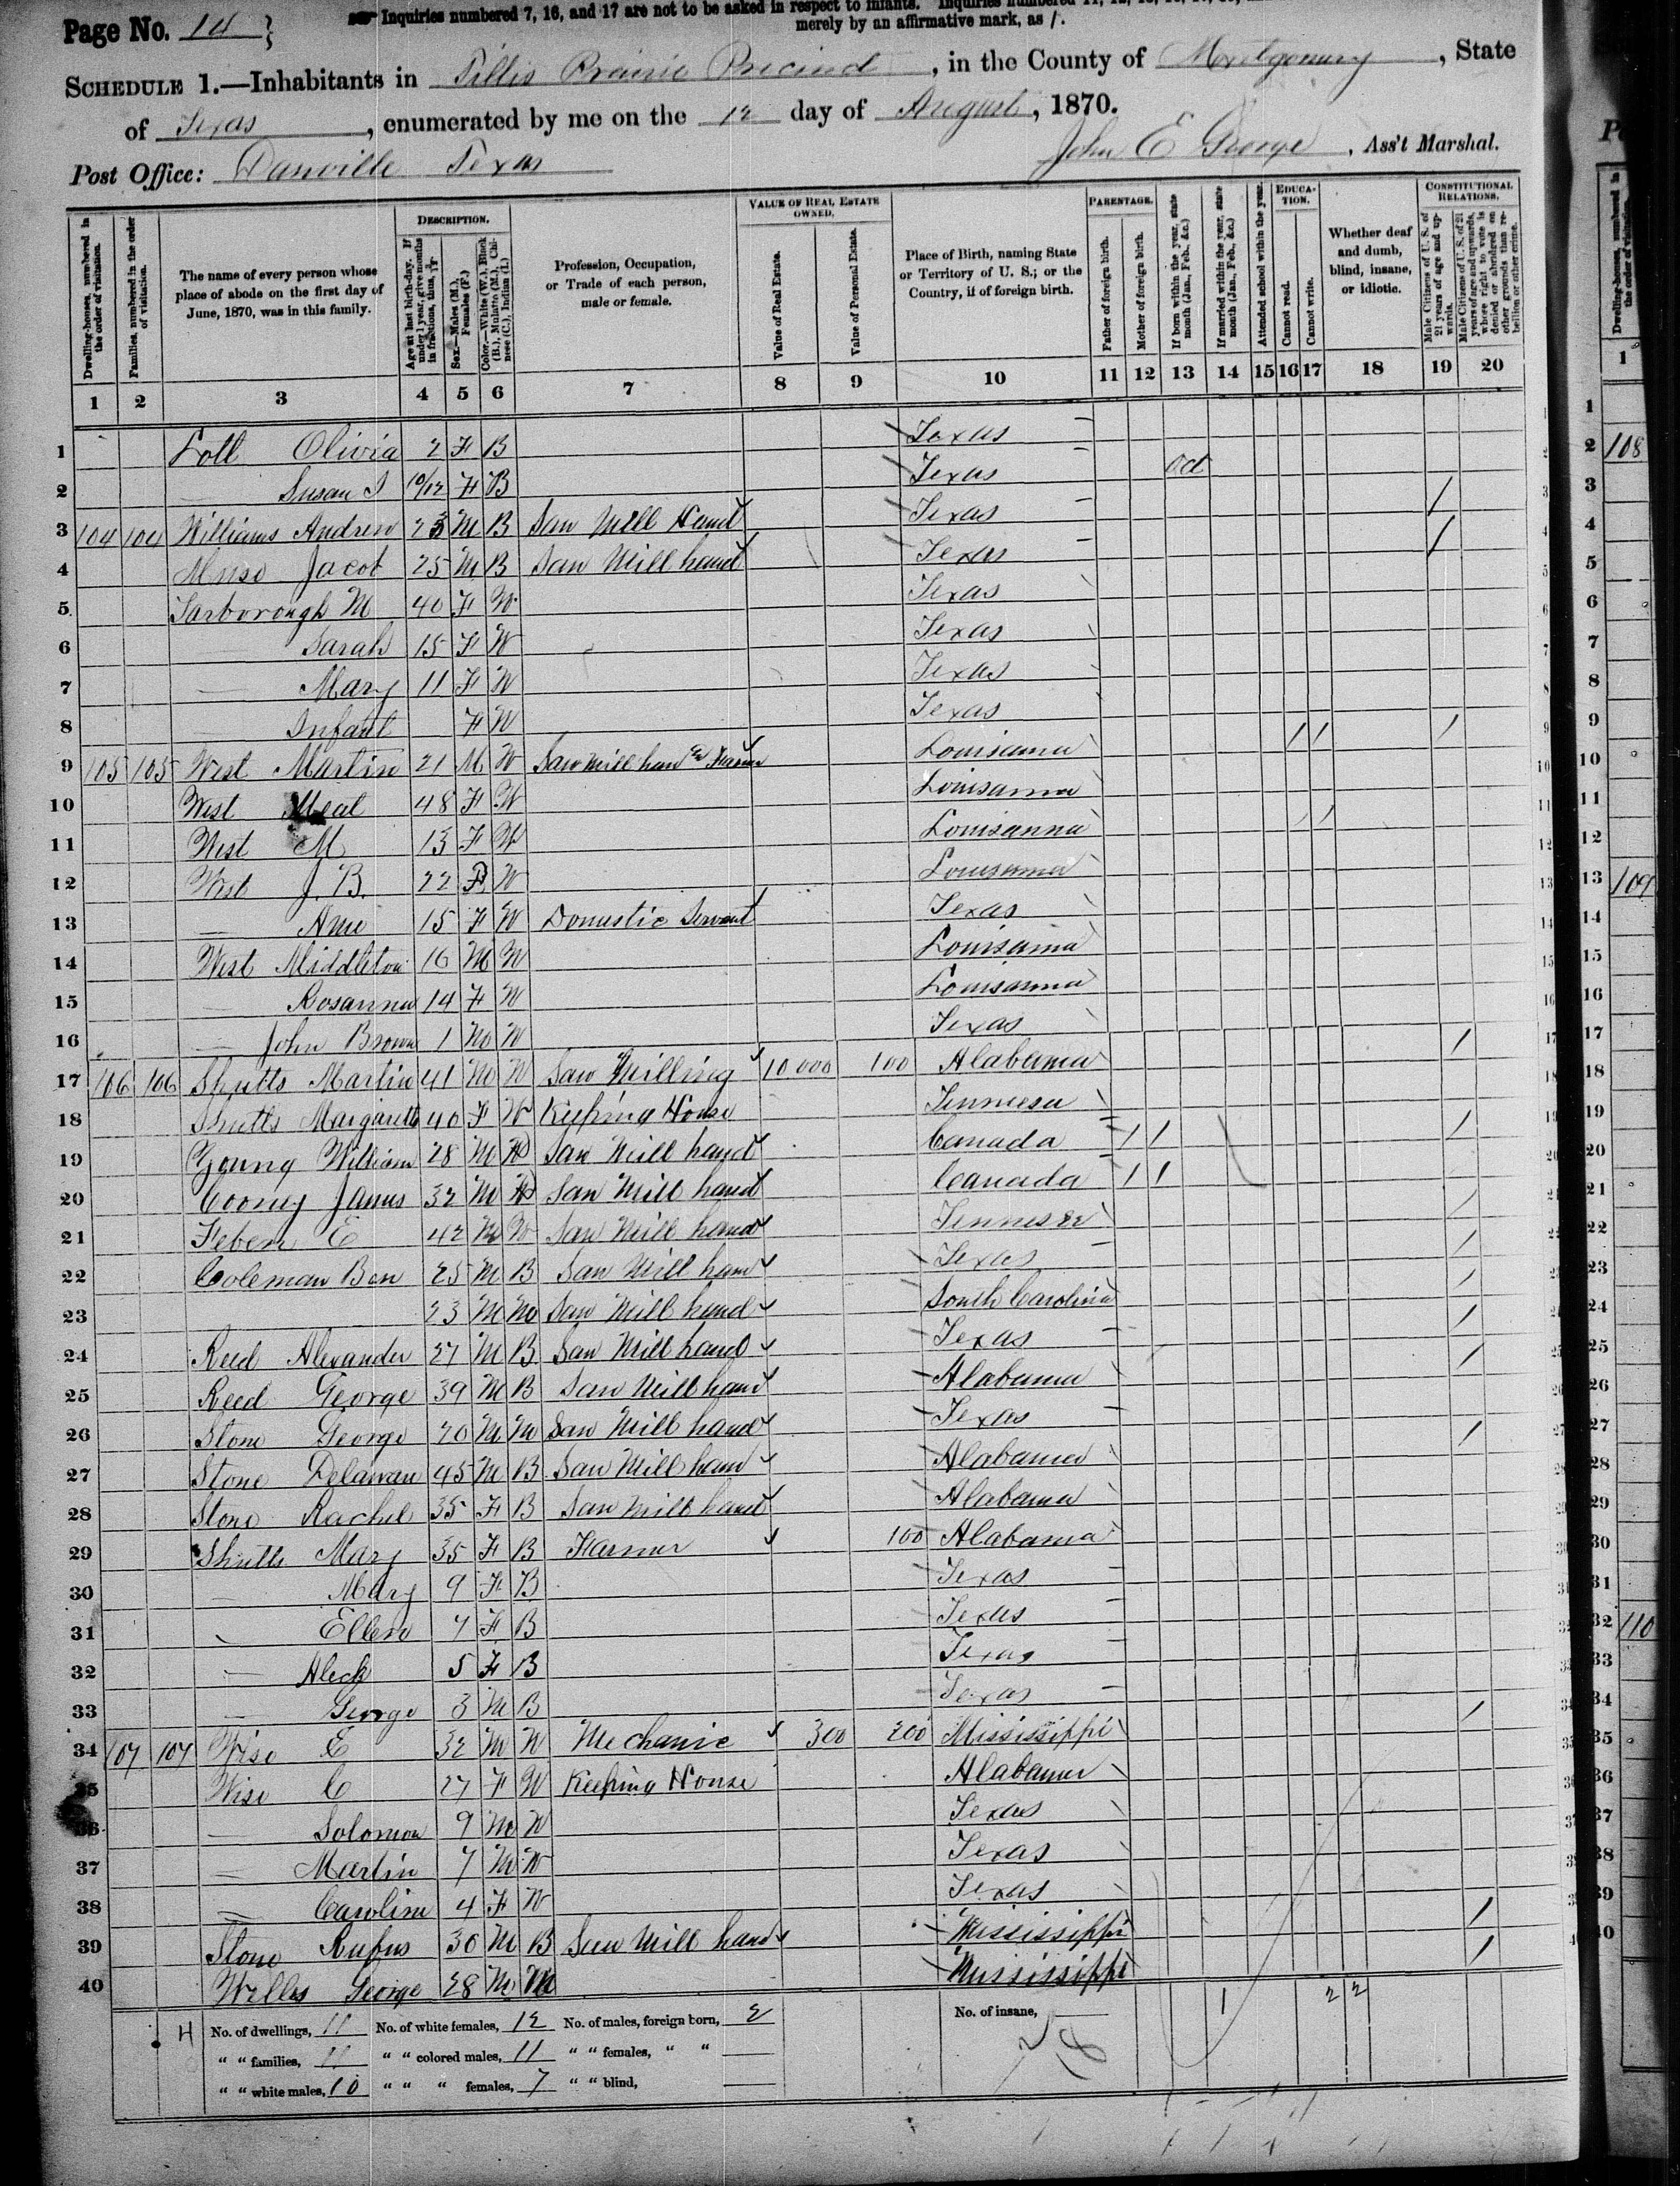 Page No. 14
Inquiries numbered 7, 16, and 17 are not to be asked in respect to infants.
merely by an affirmative mark, as /.
SCHEDULE 1.—Inhabitants in Tillis Prairie Precinct, in the County of Montgomery, State
of Texas, enumerated by me on the 12 day of August, 1870.
Post Office: Danville Texas John E George, Ass't Marshal.
DESCRIPTION. VALUE OF REAL ESTATE OWNED. PARENTAGE. EDUCATION. CONSTITUTIONAL RELATIONS.
Dwelling-houses, numbered in the order of visitation.
Families, numbered in the order of visitation.
The name of every person whose place of abode on the first day of June, 1870, was in this family.
Age at last birth-day. If under 1 year, give months in fractions, thus, 3/12
Sex.—Males (M.), Females (F.)
Color.—White (W.), Black (B.), Mulatto (M.), Chinese (C.), Indian (I.)
Profession, Occupation, or Trade of each person, male or female.
Value of Real Estate.
Value of Personal Estate.
Place of Birth, naming State or Territory of U. S.; or the Country, if of foreign birth.
Father of foreign birth.
Mother of foreign birth.
If born within the year, state month (Jan., Feb., &c.)
If married within the year, state month (Jan., Feb., &c.)
Attended school within the year.
Cannot read.
Cannot write.
Whether deaf and dumb, blind, insane, or idiotic.
Male Citizens of U. S. of 21 years of age and upwards.
Male Citizens of U. S. of 21 years of age and upwards, whose right to vote is denied or abridged on other grounds than rebellion or other crime.
1 2 3 4 5 6 7 8 9 10 11 12 13 14 15 16 17 18 19 20
1 Lott Olivia 2 F B Texas
2 — Susan I 10/12 F B Texas Oct
3 104 104 Williams Andrew 23 M B Saw Mill Hand Texas /
4 Muse Jacob 25 M B Saw Mill hand Texas /
5 Tarborough M 40 F W Texas
6 Sarah 15 F W Texas
7 — Mary 11 F W Texas
8 — Infant F W Texas
9 105 105 West Martin 21 M W Saw mill han & Farmer Louisanna / / /
10 West 48 F W Louisanna
11 West M 13 F W Louisanna /
12 West J. B. 22 W Louisanna
13 — Ame 15 F W Domestic Servant Texas
14 West Middleton 16 M W Louisanna
15 — Rosanna 14 F W Louisanna
16 — John Brown 1 M W Texas
17 106 106 Shutts Martin 41 M W Saw Milling 10 000 100 Alabama /
18 Shutts Margarett 40 F W Keeping House Tennesee
19 Young William 28 M W Saw Mill hand Canada / / /
20 Coony James 32 M W Saw Mill hand Canada / /
21 E 42 M W Saw Mill hand Tennesee /
22 Coleman Ben 25 M B Saw Mill hand Texas /
23 23 M M Saw Mill hand South Carolina /
24 Reed Alexander 27 M B Saw Mill hand Texas /
25 Reed George 39 M B Saw Mill hand Alabama /
26 Stone George 20 M M Saw Mill hand Texas
27 Stone Delawan 45 M B Saw Mill hand Alabama /
28 Stone Rachel 35 F B Saw Mill hand Alabama
29 Shutts Mary 35 F B Farmer 100 Alabama
30 Mary 9 F B Texas
31 Ellen 7 F B Texas
32 — Aleck 5 F B Texas
33 — George 3 M B Texas
34 107 107 Wise E 32 M W Mechanic 300 200 Mississippi /
35 Wise C 27 F W Keeping House Alabama
36 — Solomon 9 M W Texas
37 — Martin 7 M W Texas
38 — Caroline 4 F W Texas
39 Stone Rufus 30 M B Saw Mill hand Mississippi /
40 Wells George 28 M M Mississippi /
4 No. of dwellings, 11 No. of white females, 12 No. of males, foreign born, 2 No. of insane, — 1 2 2
" " families, 11 " " colored males, 11 " " females, " " —
" " white males, 10 " " " females, 7 " " blind, —
Dwelling-houses, numbered in the order of visitation.
1
108
109
110